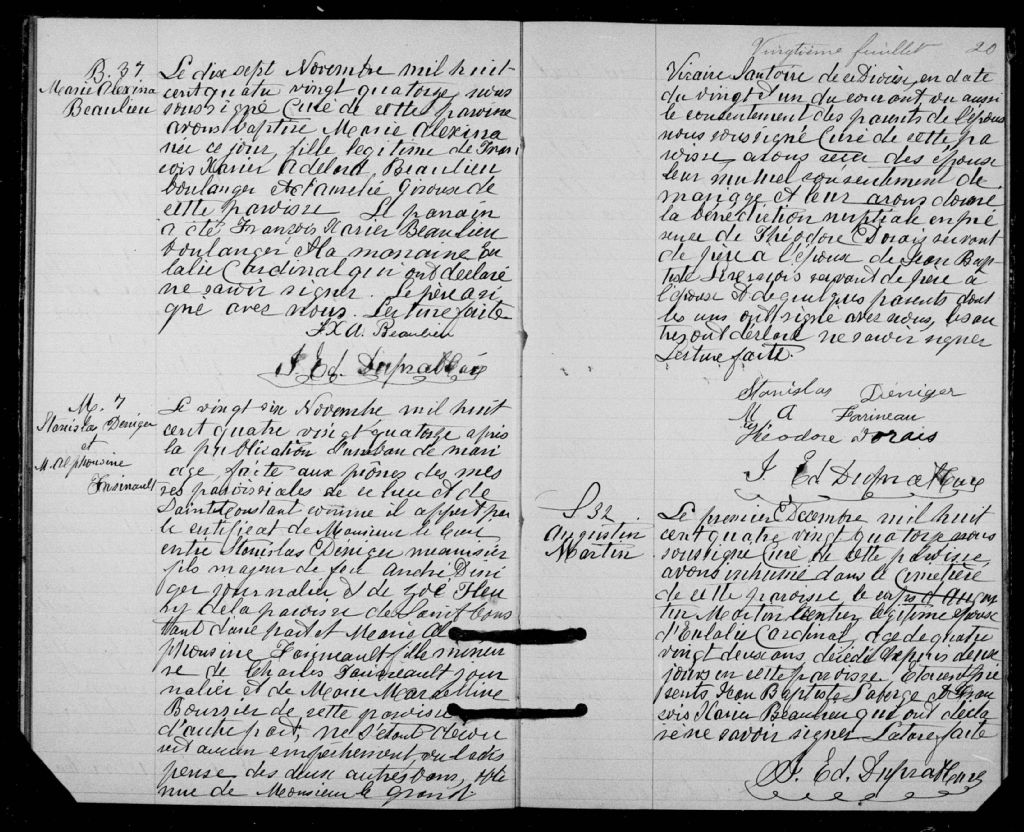 B. 37
Marie Alexina
Beaulieu
Le dix sept Novembre mil huit
cent quatre vingt quatorze nous
soussigné Curé de cette paroisse
avons baptisé Marie Alexina
née ce jour fille légitime de Fran
çois Xavier Adelard Beaulieu
boulanger et d'Amelie Giroux de
cette paroisse Le parrain
a été François Xavier Beaulieu
boulanger et la marraine Eu
lalie Cardinal qui ont déclaré
ne savoir signer. Le père a si
gné avec nous. Lecture faite
F X A. Beaulieu
J. Ed. Dupras Ptre Curé
M. 7
Stanislas Deniger
et
M. Alphonsine
Farineault
Le vingt six Novembre mil huit
cent quatre vingt quatorze après
la publication d'un ban de mari
age faite aux prones des mes
ses paroissiales de ce lieu et de
Saint Constant comme il appert par
le certificat de Monsieur le Curé
entre Stanislas Deniger menuisier
fils majeur de feu André Deni
ger journalier et de Zoé Fleu
ry de la paroisse de Saint Cons
tant d'une part et Marie Al
phonsine Faigneault fille mineu
re de Charles Faigneault jour
nalier et de Marie Marcelline
Boursier de cette paroisse
d'autre part, ne s'étant découv
ert aucun empêchement, vu la dis
pense des deux autres bans, obte
nue de Monsieur le grand
Vingtième feuillet 20
Vicaire de ce Diocèse, en date
du vingt et un du courant, vu aussi
le consentement des parents de l'épouse
nous soussigné Curé de cette pa
roisse avons reçu des époux
leur mutuel consentement de
mariage et leur avons donné
la bénédiction nuptiale en pré
sence de Théodore Dorais servant
de père à l'époux de Jean Bap
tiste servant de père à
l'épouse et de quelques parents dont
les uns ont signé avec nous, les au
tres ont déclaré ne savoir signer
Lecture faite.
Stanislas Déniger
M A Farineau
Théodore Dorais
J. Ed Dupras Ptre Curé
S 32.
Augustin
Martin
Le premier Décembre mil huit
cent quatre vingt quatorze nous
soussigné Curé de cette paroisse
avons inhumé dans le Cimetière
de cette paroisse le corps d'Augus
tin Martin rentier légitime époux
d'Eulalie Cardinal, age de quatre
vingt deux ans décédé depuis deux
jours en cette paroisse. Etaient pré
sents Jean Baptiste Laberge et Fran
çois Xavier Beaulieu qui ont décla
ré ne savoir signer Lecture faite
J. Ed. Dupras Ptre Curé